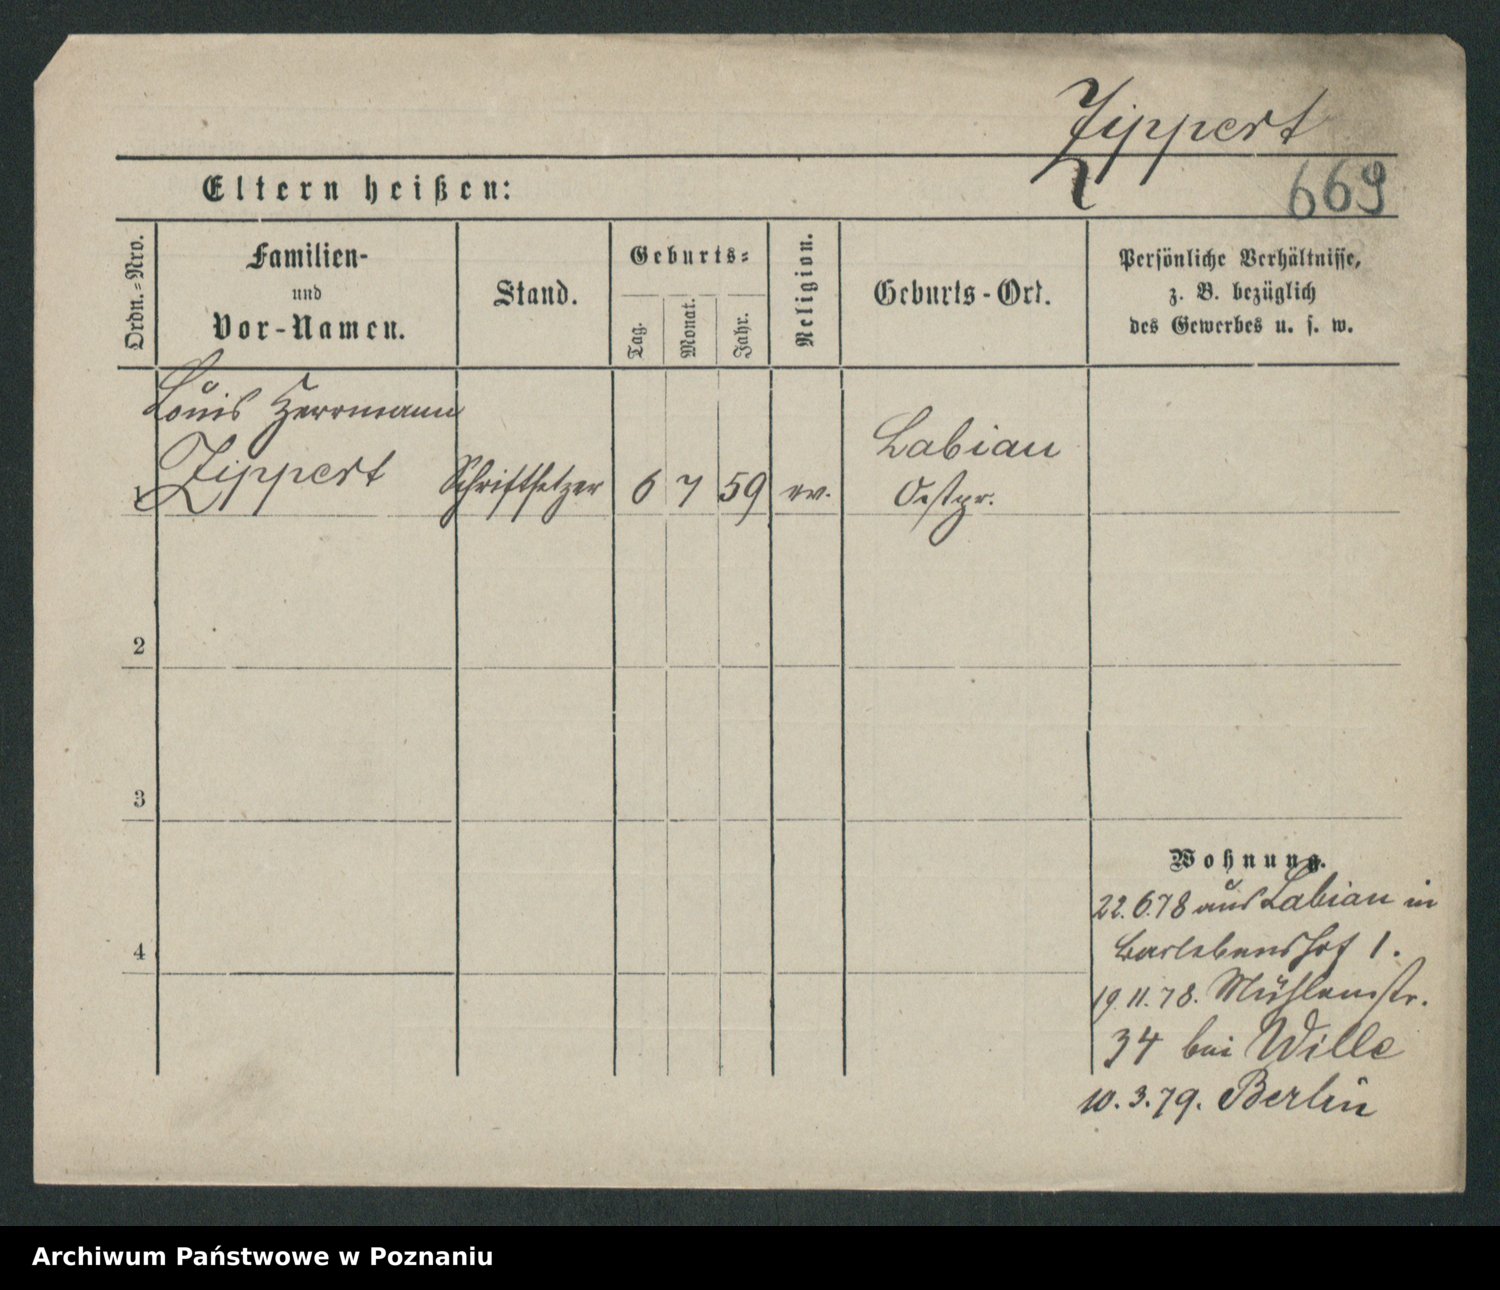 Zippert
669
Eltern heißen:
Ordn.-Nro.
Familien-
und
Vor-Namen.
Stand.
Geburts-
Tag.
Monat.
Jahr.
Religion.
Geburts-Ort.
Persönliche Verhältnisse,
z. B. bezüglich
des Gewerbes u. s. w.
Louis Herrmann
1 Zippert Schriftsetzer 6 7 59 ev. Labiau
Ostpr.
2
3
4
Wohnung.
22.6.78 aus Labiau in
Barlebenshof 1.
19.11.78. Mühlenstr.
34 bei Wille
10.3.79. Berlin
Archiwum Państwowe w Poznaniu